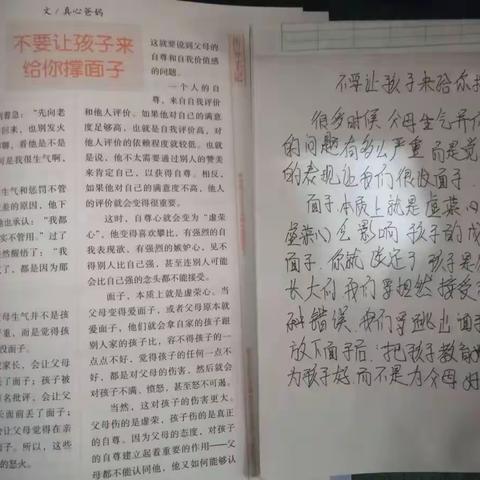 文/真心爸妈
不要让孩子来
给你撑面子
着急：“先向老
回来，也别发火
聊，看他是不是
问是我很生气啊，
生气和惩罚不管
差的原因，他下
他也承认：“我都
实不管用。”过了
然醒悟：“我
了，都是因为那
母生气并不是孩
重，而是觉得孩
没面子。
家长，会让父母
丢了面子；孩子被
名批评，会让父
长面前丢了面子；
会让父母觉得在亲
面子。所以，这些
的怒火。
这就要说到父母的
自尊和自我价值感
的问题。
一个人的自
尊，来自自我评价
和他人评价。如果他对自己的满意
度足够高，也就是自我评价高，对
他人评价的依赖程度就较低。也就
是说，他不太需要通过别人的赞美
来肯定自己，以获得自尊。相反，
如果他对自己的满意度不高，他人
的评价就会变得很重要。
这时，自尊心就会变为“虚荣
心”。他变得喜欢攀比，有强烈的自
我表现欲，有强烈的嫉妒心，见不
得别人比自己强，甚至连别人可能
会比自己强的念头都不能接受。
面子，本质上就是虚荣心。当
父母变得爱面子，或者父母原本就
爱面子，他们就会拿自家的孩子跟
别人家的孩子比，容不得孩子的一
点点不好，觉得孩子的任何一点不
好，都是对父母的伤害，然后就会
对孩子不满、愤怒，甚至怒不可遏。
当然，这对孩子的伤害更大。
父母伤的是虚荣，孩子伤的是真正
的自尊。因为父母的态度，对孩子
的自尊建立起着重要的作用——父
母都不能认同他，他又如何能够认
不要让孩子来给你撑
很多时候父母生气并
的问题有多么严重而是觉
的表现让我们很没面子.
面子本质上就是虚荣心
虚荣心会影响孩子的成
面子.你就
长大的我们要坦然接受
错误.我们要逃出面子
放下面子后.把孩子教育
为孩子好而不是为父母好